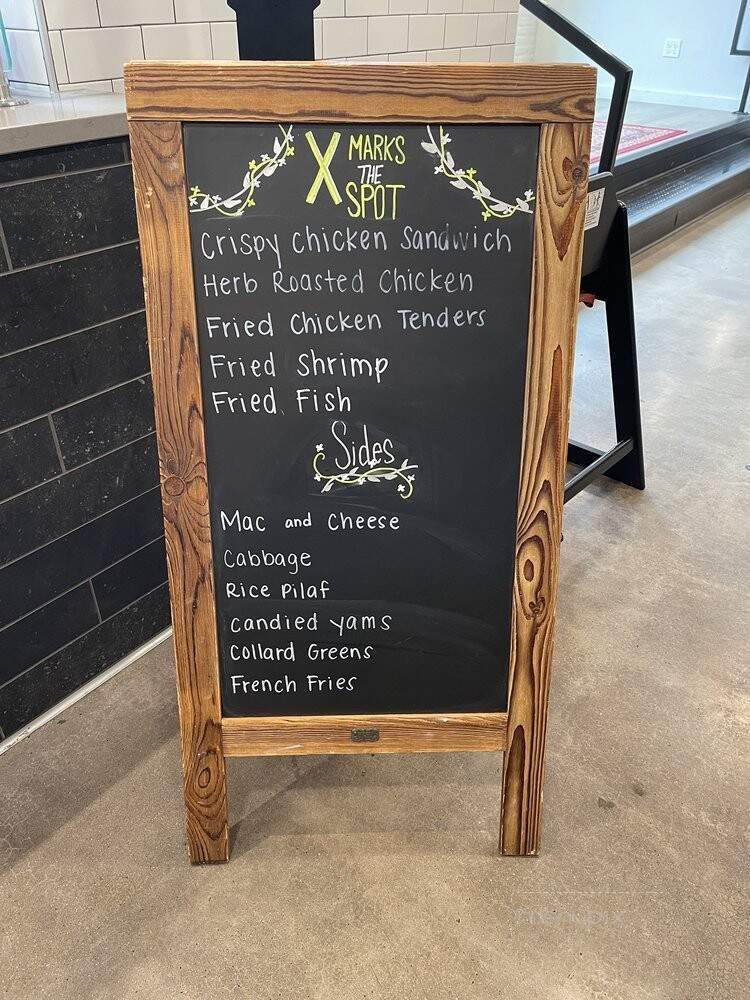 X MARKS
THE
SPOT
Crispy chicken Sandwich
Herb Roasted Chicken
Fried Chicken Tenders
Fried Shrimp
Fried Fish
Sides
Mac and Cheese
Cabbage
Rice Pilaf
candied yams
Collard Greens
French Fries
menupix